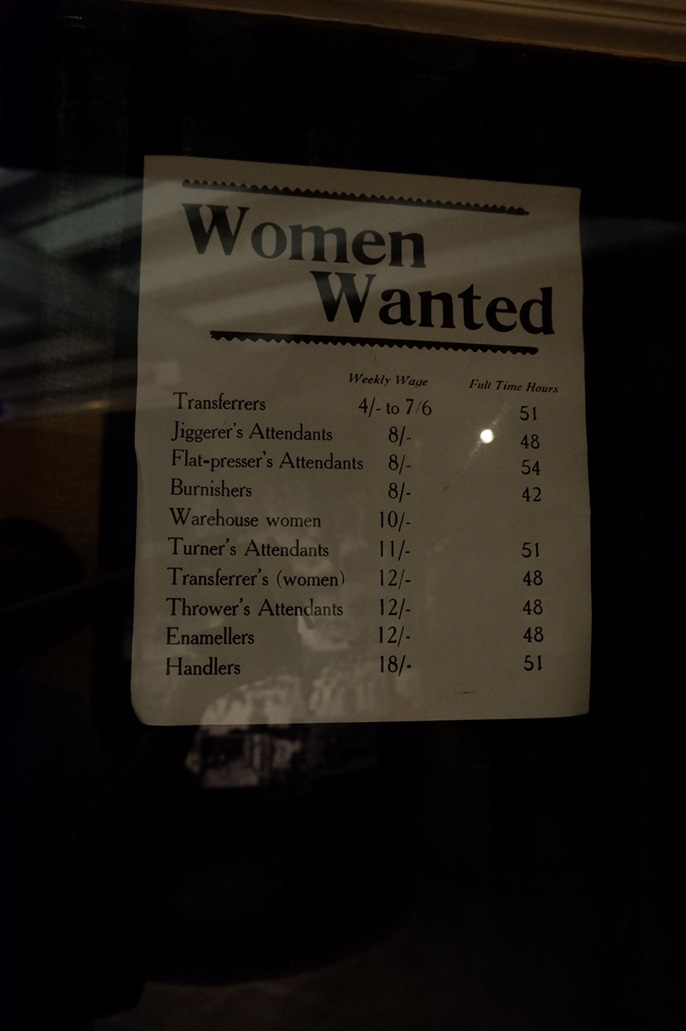 Women
Wanted
Weekly Wage Full Time Hours
Transferrers 4/- to 7/6 51
Jiggerer's Attendants 8/- 48
Flat-presser's Attendants 8/- 54
Burnishers 8/- 42
Warehouse women 10/-
Turner's Attendants 11/- 51
Transferrer's (women) 12/- 48
Thrower's Attendants 12/- 48
Enamellers 12/- 48
Handlers 18/- 51